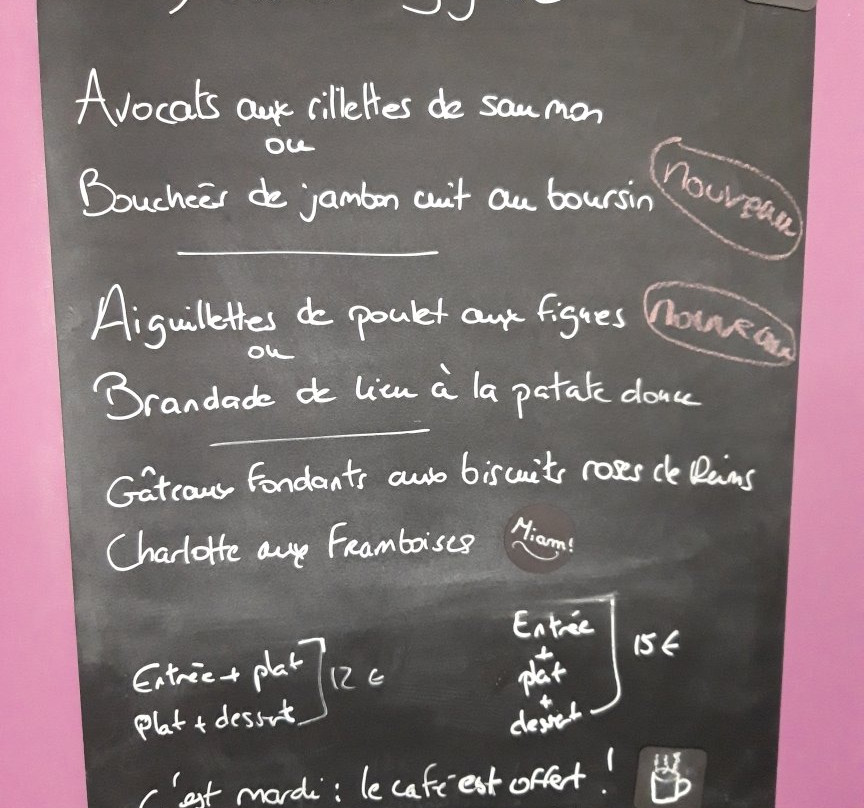 Avocats aux rillettes de saumon
ou
Bouchées de jambon cuit au boursin nouveau
Aiguillettes de poulet aux figues nouveau
ou
Brandade de lieu à la patate douce
Gâteaux fondants aux biscuits roses de Reims
Charlotte aux Framboises Miam!
Entrée + plat
Plat + dessert
12 €
Entrée
+
plat
+
dessert
15 €
C'est mardi : le café est offert !